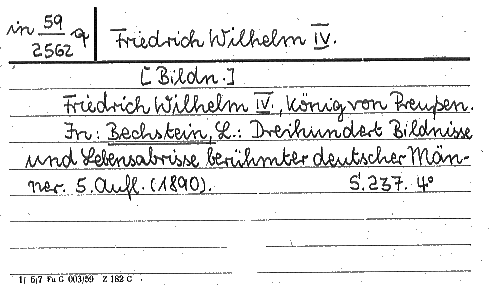 in 59/2562 q
Friedrich Wilhelm IV.
[Bildn.]
Friedrich Wilhelm IV., König von Preußen.
In: Bechstein, L.: Dreihundert Bildnisse
und Lebensabrisse berühmter deutscher Män-
ner. 5. Aufl. (1890). S. 237. 4°
1( 6)7 Fu G 003/59 Z 162 C